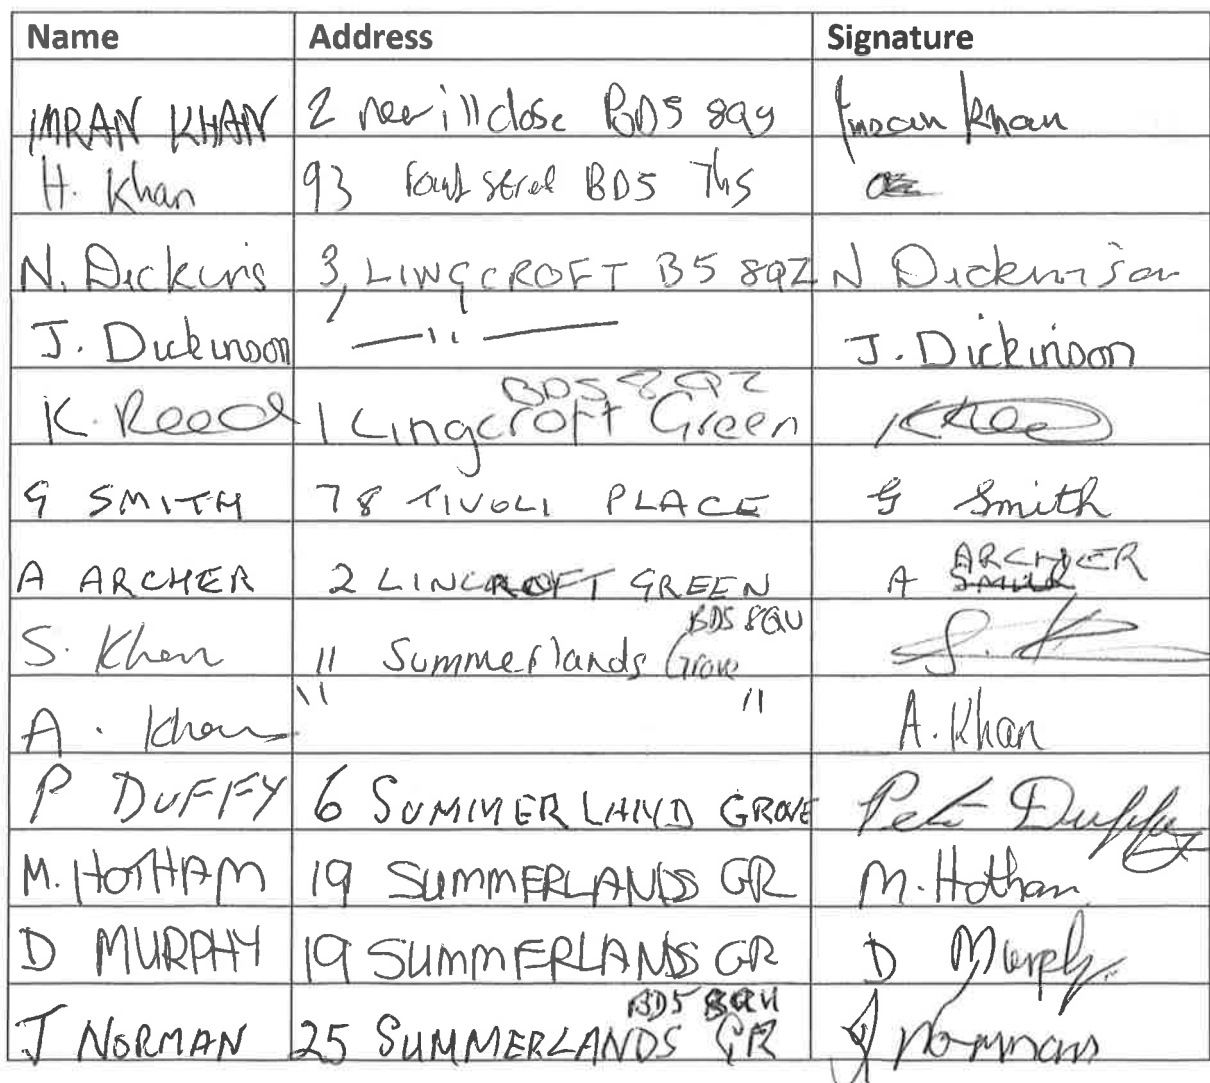 Name Address Signature
IMRAN KHAN 2 nevill close BD5 8QY Imran Khan
H. Khan 93 BD5 7hS
N. Dickins 3, LINGCROFT B5 8QZ N Dickinson
J. Dickinson —"— J. Dickinson
BD5 8QZ
K. Reed 1 Lingcroft Green
G SMITH 78 TIVOLI PLACE G Smith
ARCHER
A ARCHER 2 LINCROFT GREEN A
BD5 8QU
S. Khan 11 Summerlands Grove S. K
A. Khan " " A. Khan
P DUFFY 6 SUMMERLAND GROVE Pete Duffy
M. HOTHAM 19 SUMMERLANDS GR M. Hotham
D MURPHY 19 SUMMERLANDS GR D Murphy
BD5 8QU
J NORMAN 25 SUMMERLANDS GR J Normans